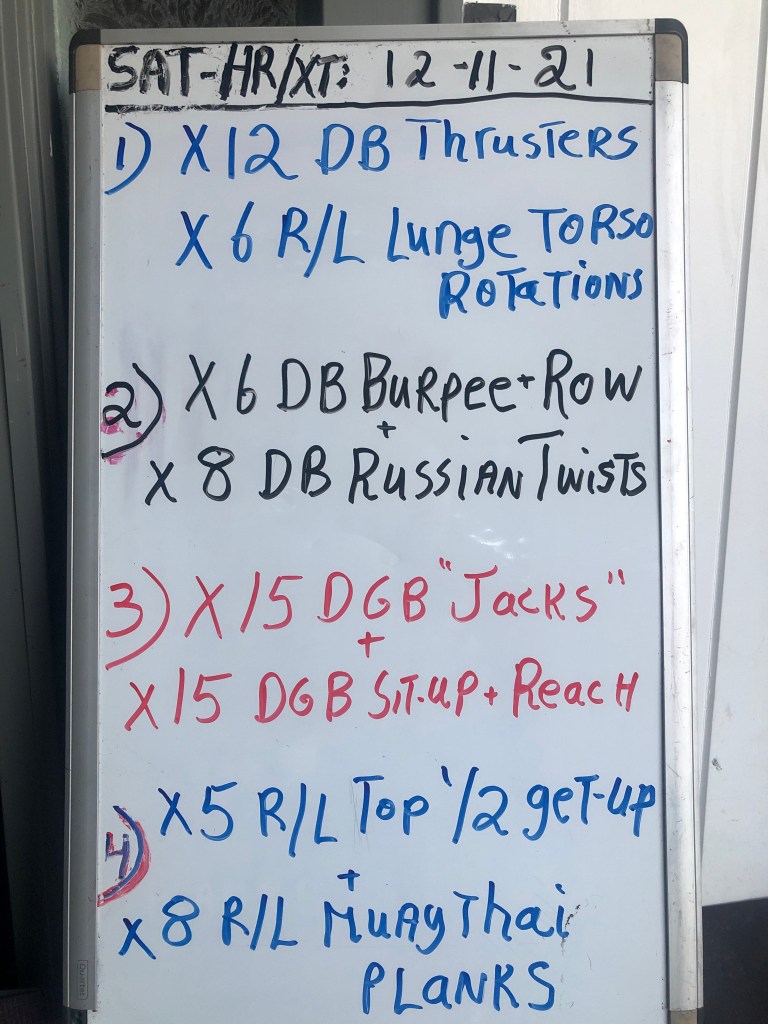 SAT-HR/XT: 12-11-21
1) X12 DB Thrusters
X 6 R/L Lunge Torso
Rotations
2) X 6 DB Burpee + Row
+
X 8 DB Russian Twists
3) X 15 DGB "Jacks"
+
X 15 DGB Sit-up + Reach
4) X5 R/L Top 1/2 get-up
+
X 8 R/L Muay Thai
Planks